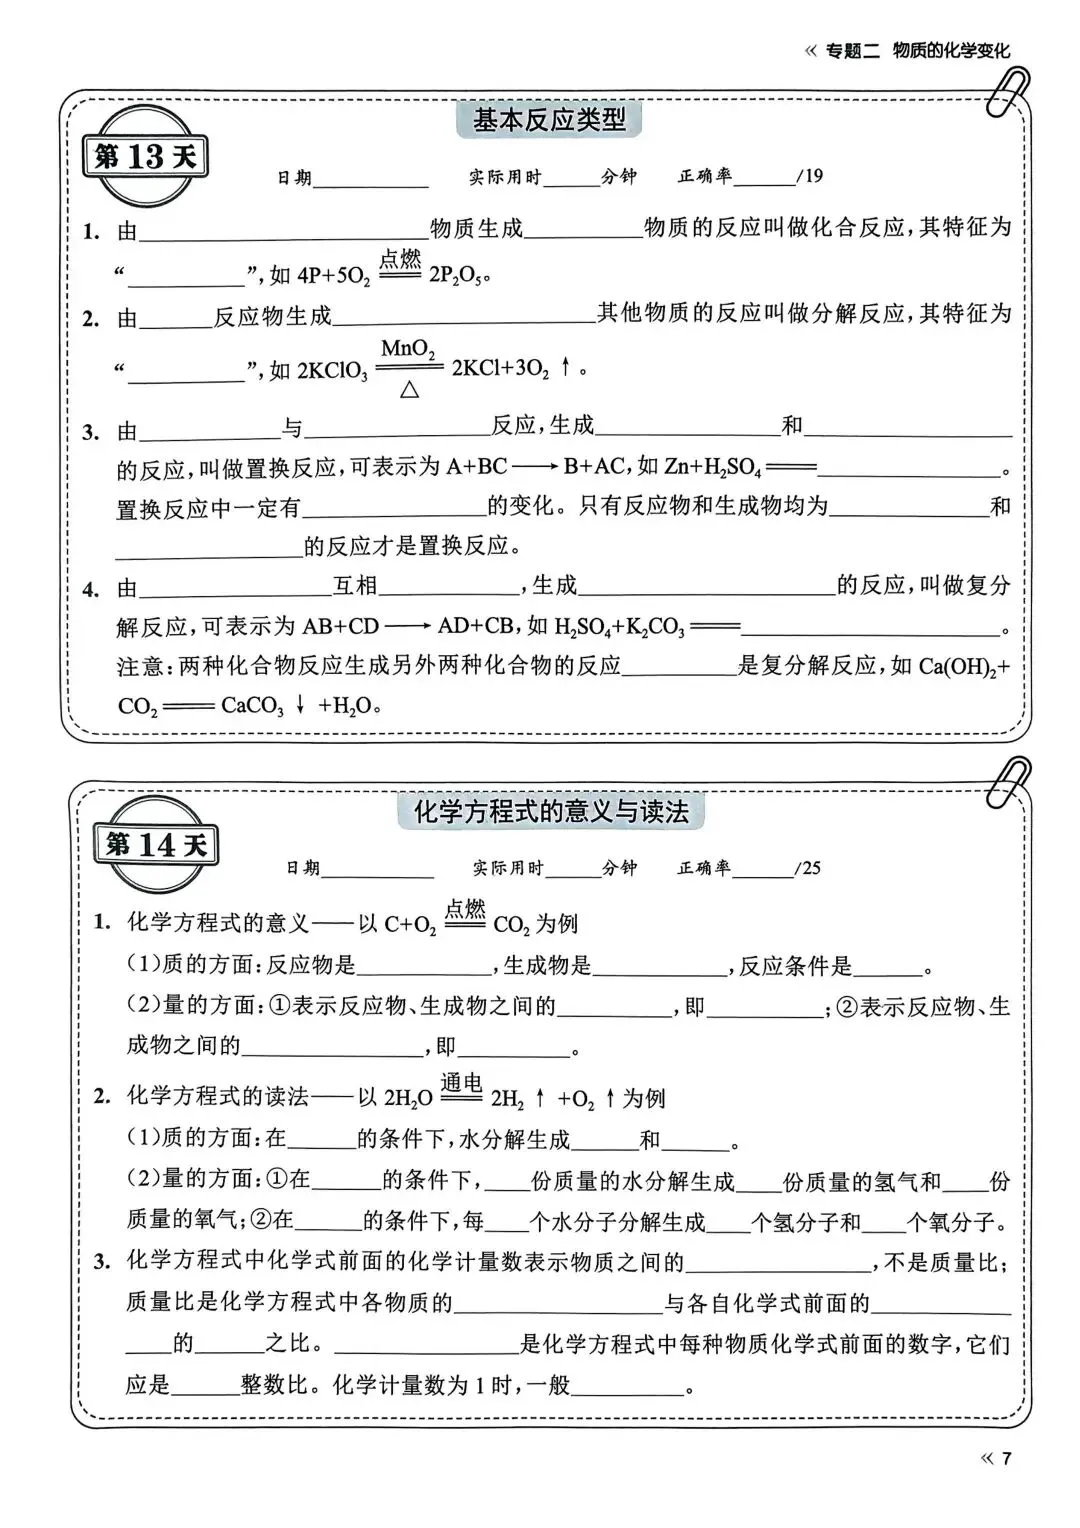 « 专题二 物质的化学变化
基本反应类型
第13天
日期__________ 实际用时_____分钟 正确率_____/19
1. 由__________________________物质生成__________物质的反应叫做化合反应,其特征为
“__________”,如 4P+5O₂ 点燃═══ 2P₂O₅。
2. 由______反应物生成______________________其他物质的反应叫做分解反应,其特征为
“__________”,如 2KClO₃ MnO₂═══△ 2KCl+3O₂↑。
3. 由____________与________________反应,生成________________和__________________
的反应,叫做置换反应,可表示为 A+BC ⟶ B+AC,如 Zn+H₂SO₄ ═══ ________________。
置换反应中一定有________________的变化。只有反应物和生成物均为______________和
________________的反应才是置换反应。
4. 由________________互相____________,生成______________________的反应,叫做复分
解反应,可表示为 AB+CD ⟶ AD+CB,如 H₂SO₄+K₂CO₃ ═══ ______________________。
注意:两种化合物反应生成另外两种化合物的反应__________是复分解反应,如 Ca(OH)₂+
CO₂ ═══ CaCO₃↓+H₂O。
化学方程式的意义与读法
第14天
日期__________ 实际用时_____分钟 正确率_____/25
1. 化学方程式的意义——以 C+O₂ 点燃═══ CO₂ 为例
(1)质的方面:反应物是____________,生成物是____________,反应条件是______。
(2)量的方面:①表示反应物、生成物之间的__________,即__________;②表示反应物、生
成物之间的________________,即__________。
2. 化学方程式的读法——以 2H₂O 通电═══ 2H₂↑+O₂↑为例
(1)质的方面:在______的条件下,水分解生成______和______。
(2)量的方面:①在______的条件下,____份质量的水分解生成____份质量的氢气和____份
质量的氧气;②在______的条件下,每____个水分子分解生成____个氢分子和____个氧分子。
3. 化学方程式中化学式前面的化学计量数表示物质之间的________________,不是质量比;
质量比是化学方程式中各物质的__________________与各自化学式前面的____________
____的______之比。________________是化学方程式中每种物质化学式前面的数字,它们
应是______整数比。化学计量数为 1 时,一般__________。
« 7